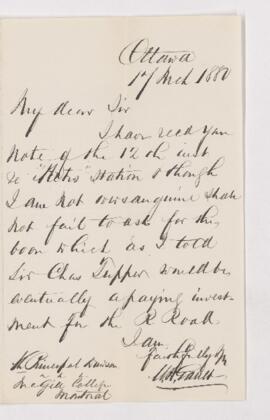 Ottawa
17 Mch 1880
My dear Sir
I have recd your
Note of the 12th inst
re "Metis" Station & though
I am not oversanguine shall
not fail to ask for the
boon which as I told
Sir Chas Tupper would be
eventually a paying invest-
ment for the R Road
I am
faithfully Yrs
Principal Dawson
McGill College
Montreal